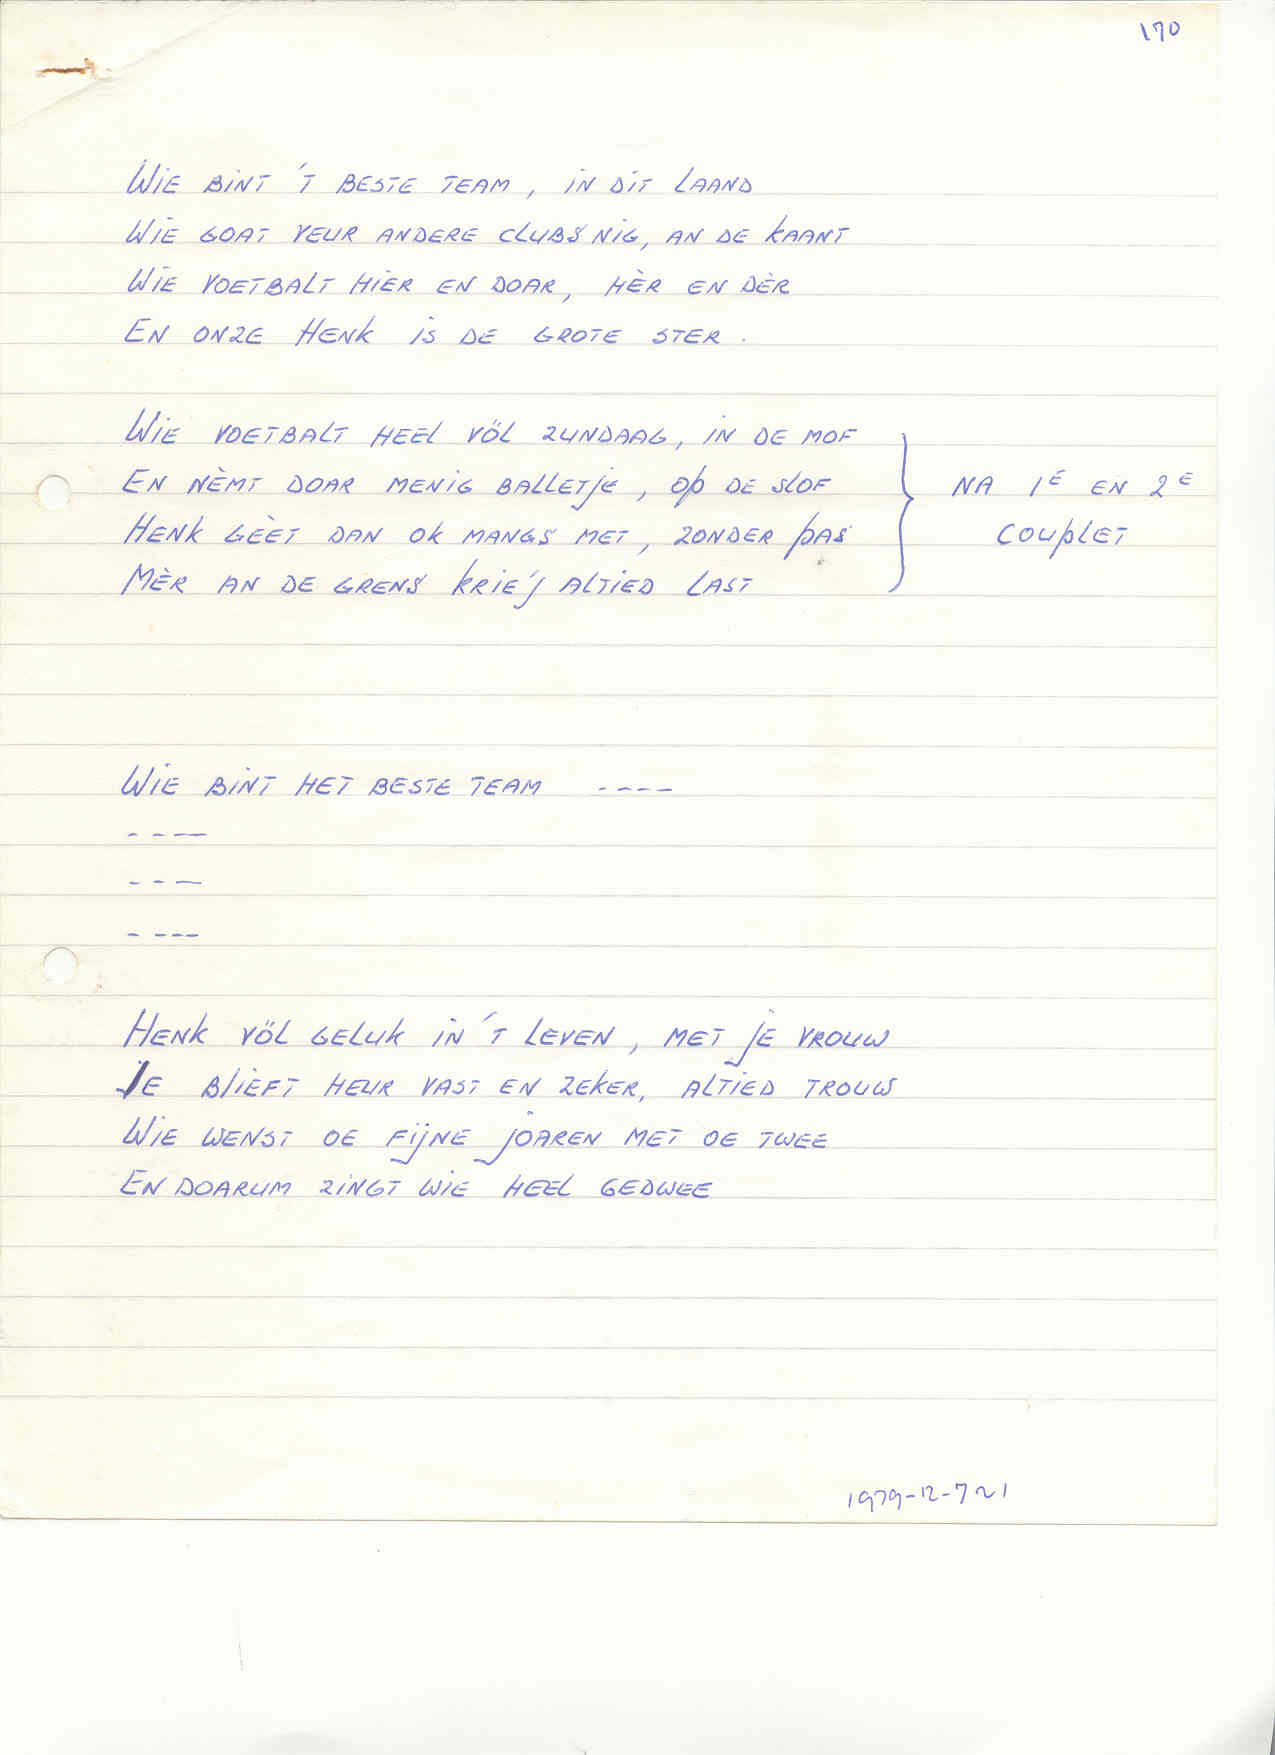 170
WIE BINT 'T BESTE TEAM, IN DIT LAAND
WIE GOAT VEUR ANDERE CLUBS NIG, AN DE KAANT
WIE VOETBALT HIER EN DOAR, HÈR EN DÈR
EN ONZE HENK IS DE GROTE STER.
WIE VOETBALT HEEL VÖL ZUNDAAG, IN DE MOF
EN NÈMT DOAR MENIG BALLETJE, OP DE SLOF
HENK GÈET DAN OK MANGS MET, ZONDER PAS
MÈR AN DE GRENS KRIE'J ALTIED LAST
} NA 1E EN 2E
COUPLET
WIE BINT HET BESTE TEAM ----
----
---
----
HENK VÖL GELUK IN 'T LEVEN, MET JE VROUW
JE BLIEFT HEUR VAST EN ZEKER, ALTIED TROUW
WIE WENST OE FIJNE JOAREN MET OE TWEE
EN DOARUM ZINGT WIE HEEL GEDWEE
1979-12-721